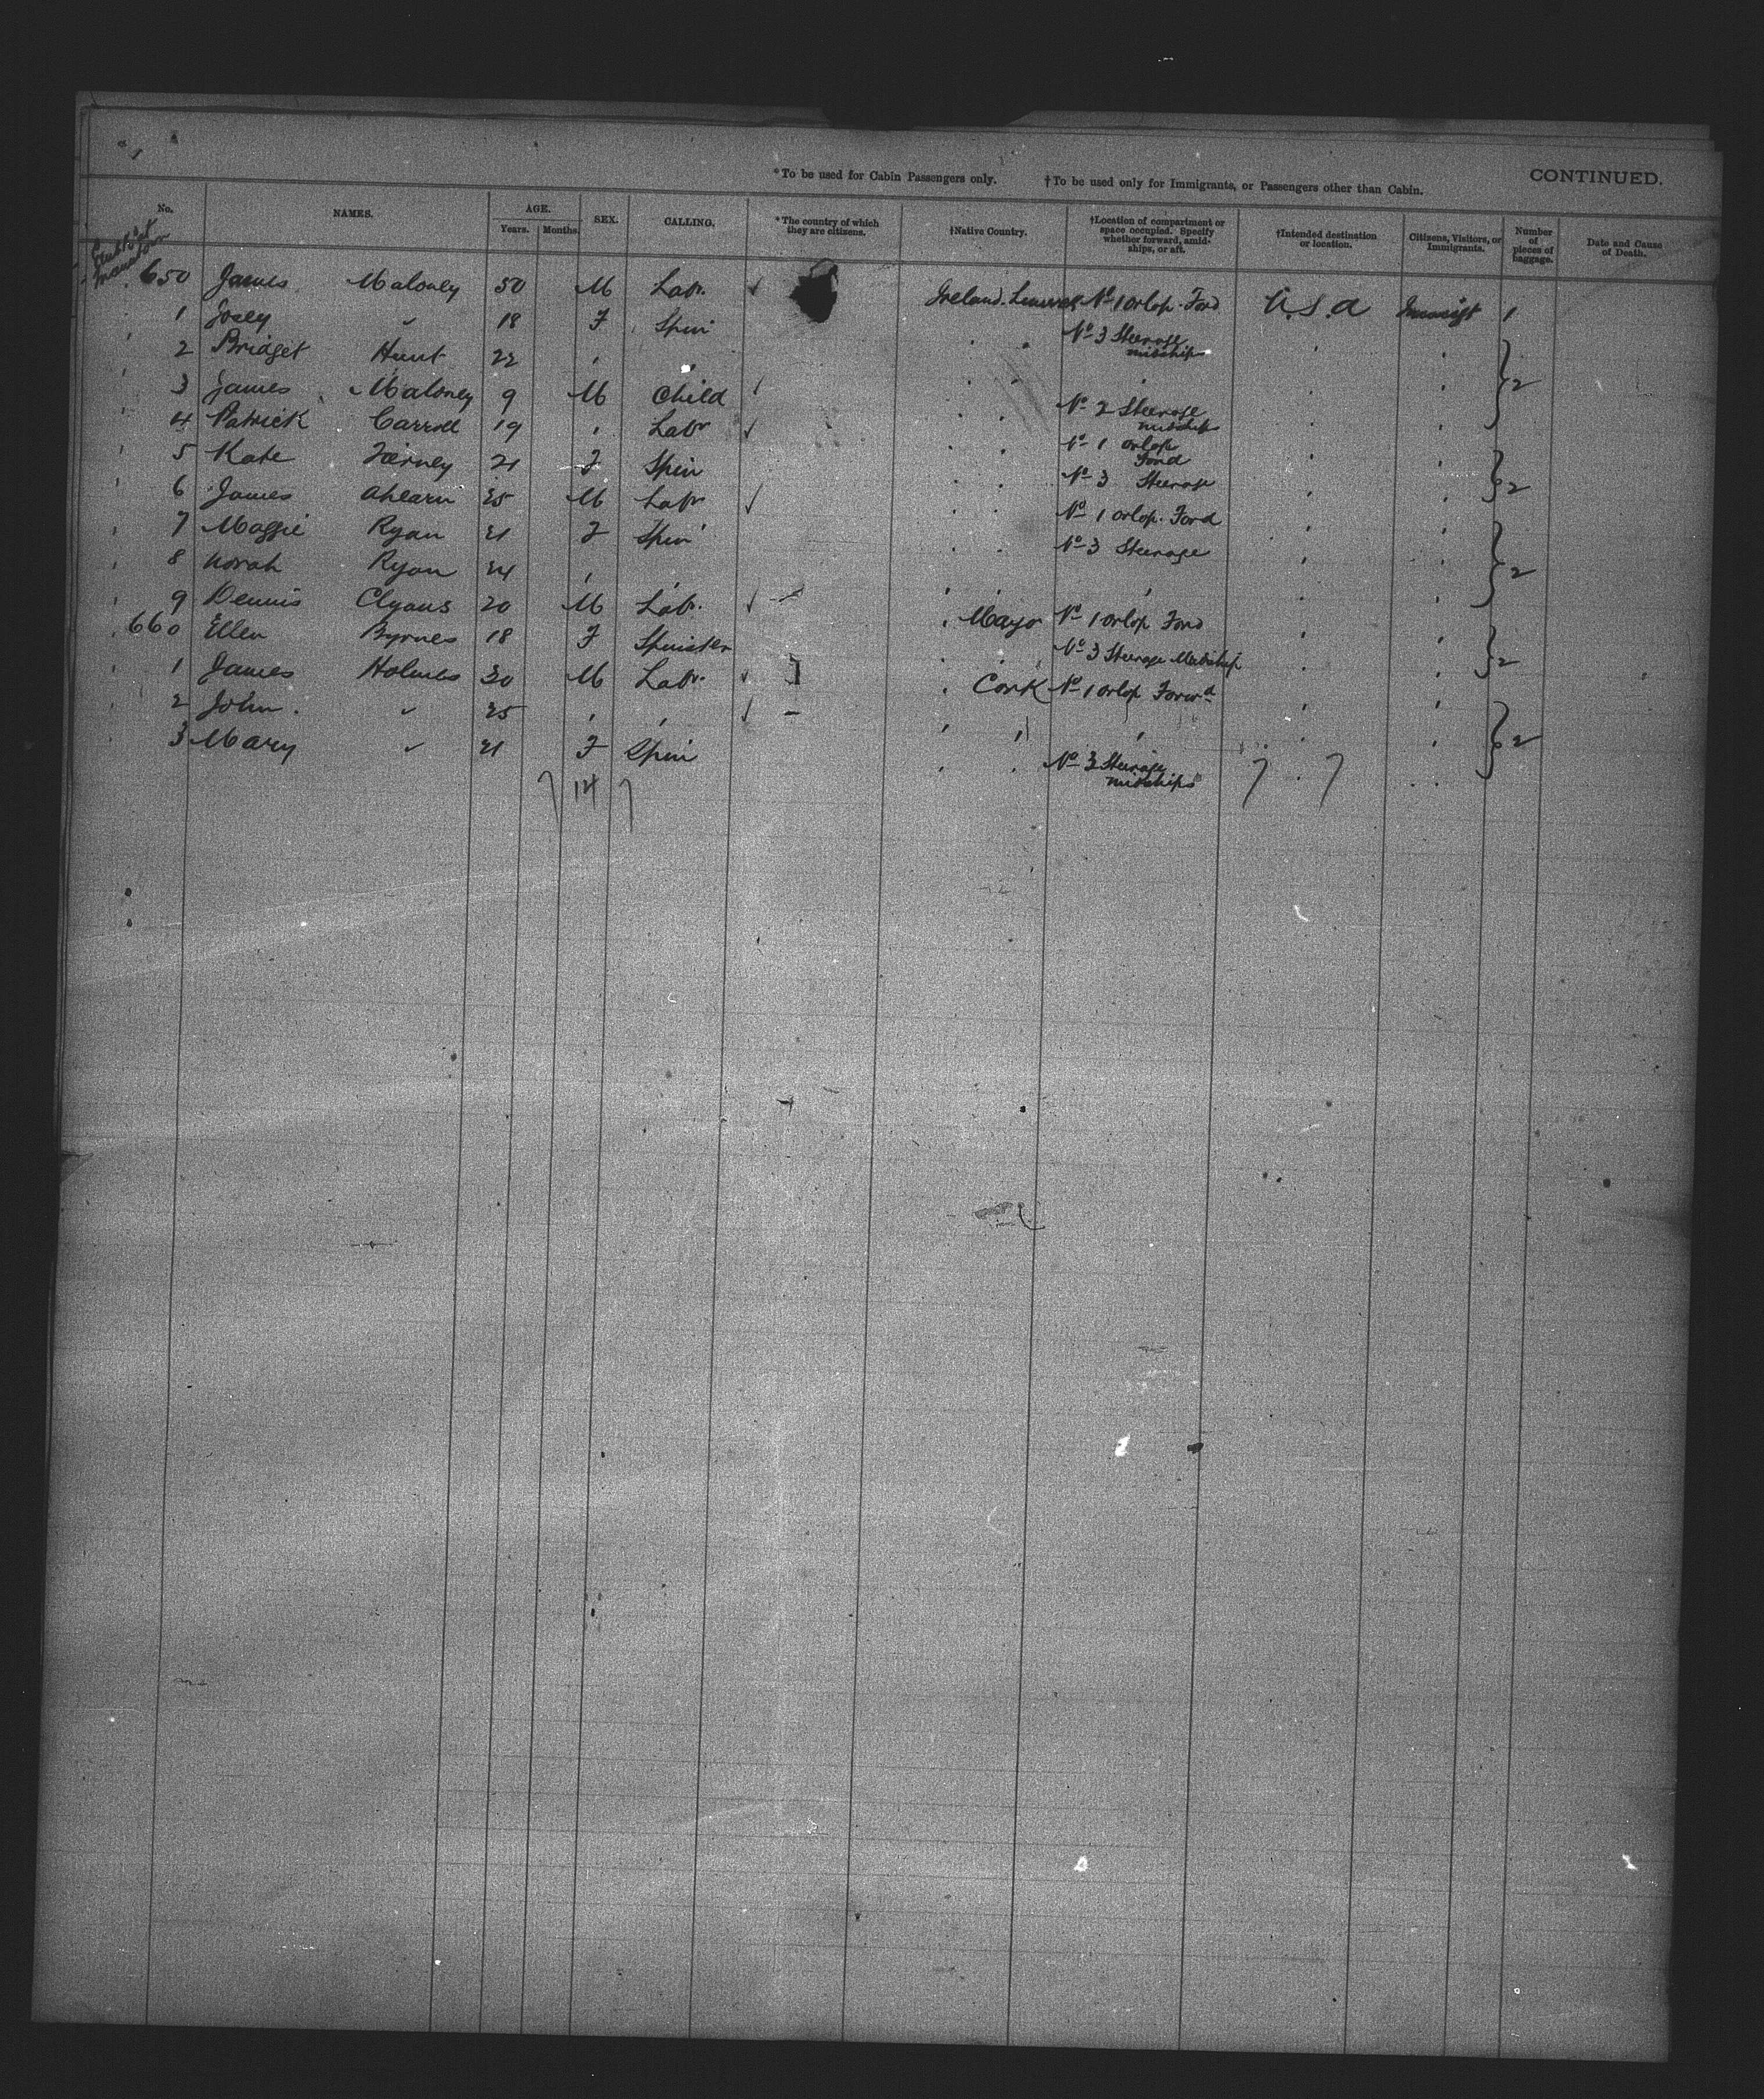 *To be used for Cabin Passengers only. †To be used only for Immigrants, or Passengers other than Cabin. CONTINUED.
No. NAMES. AGE. Years. Months. SEX. CALLING. *The country of which they are citizens. †Native Country. †Location of compartment or space occupied. Specify whether forward, amidships, or aft. †Intended destination or location. Citizens, Visitors, or Immigrants. Number of pieces of baggage. Date and Cause of Death.
650 James Maloney 50 M Labr. Ireland. No 1 orlop. Ford U.S.A 1
1 Josey " 18 F Spin No 3 Steerage midships
2 Bridget Hunt 22 " " 2
3 James Maloney 9 M Child No 2 Steerage midship
4 Patrick Carroll 19 " Labr No 1 orlop Ford
5 Kate Tierney 21 F Spin No 3 Steerage 2
6 James Ahearn 25 M Labr No 1 orlop. Ford
7 Maggie Ryan 21 F Spin No 3 Steerage
8 Norah Ryan 24 " " 2
9 Dennis 20 M Labr. " Mayo No 1 orlop Ford
660 Ellen Byrnes 18 F Spinster No 3 Steerage Midship 2
1 James Holmes 30 M Labr. " Cork No 1 orlop Forwd
2 John. " 25 " " " " " 2
3 Mary " 21 F Spin No 3 Steerage midships
14